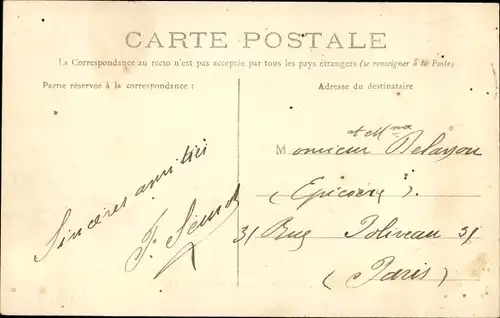 CARTE POSTALE
La Correspondance au recto n'est pas acceptée par tous les pays étrangers (se renseigner à la Poste)
Partie réservée à la correspondance :
Adresse du destinataire
Sincères amitiés
et Mme
Monsieur Delayou
(Epicerie).
31 Rue Poliveau 31
(Paris)